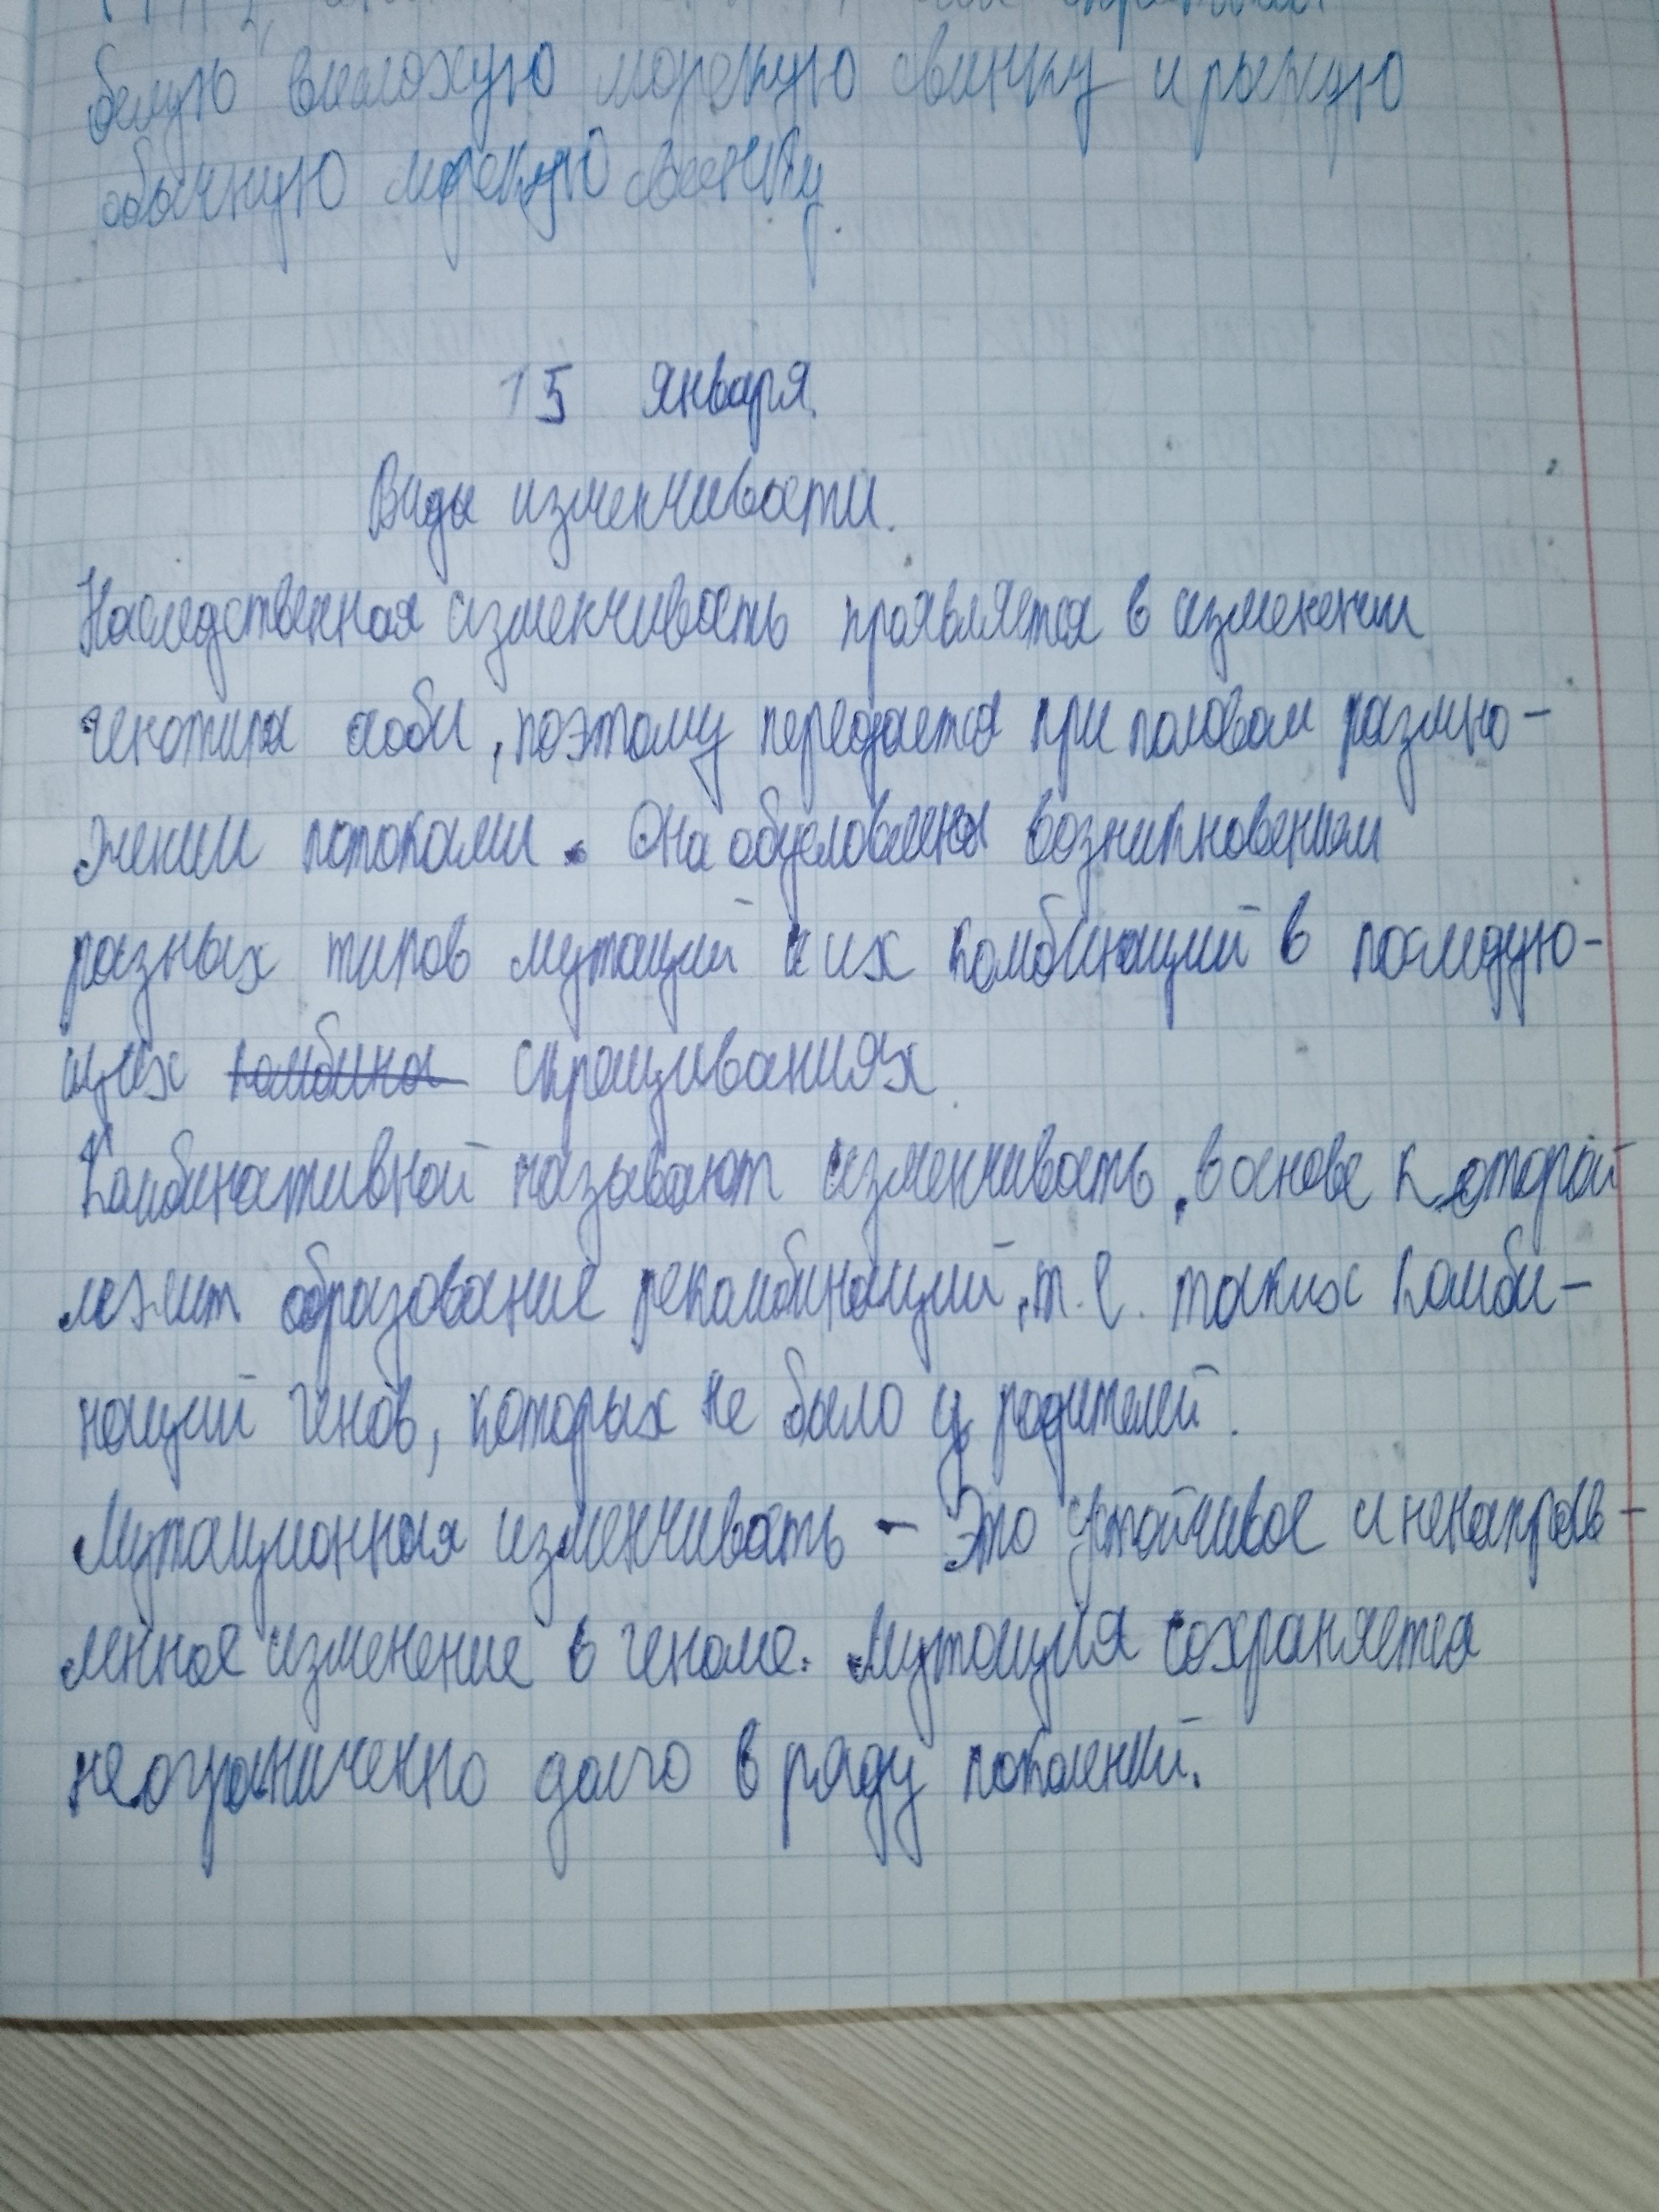 белую вислоухую морскую свинку и рыжую
обычную морскую свинку.
15 января.
Виды изменчивости.
Наследственная изменчивость проявляется в изменении
генотипа особи, поэтому передается при половом размно-
жении потоками. Она обусловлена возникновением
разных типов мутаций и их комбинаций в последую-
щих комбина скрещиваниях.
Комбинативной называют изменчивость, в основе которой
лежит образование рекомбинаций, т.е. таких комби-
наций генов, которых не было у родителей.
Мутационная изменчивость - Это устойчивое и ненаправ-
ленное изменение в геноме. Мутация сохраняется
неограниченно долго в ряду поколений.